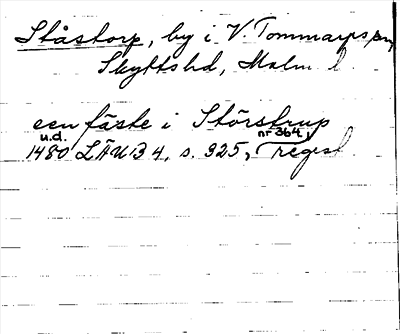 Ståstorp, by i V. Tommarps sn,
Skytts hd, Malm. l.
een fäste i Störstrup
u.d. nr 364 i
1480 LÄUB 4, s. 325, regist.